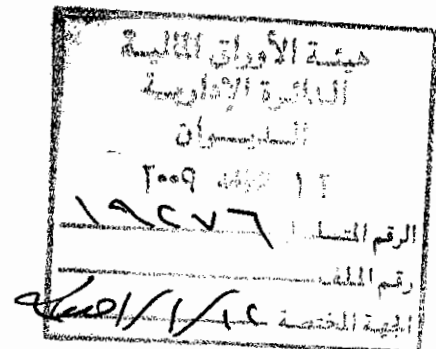 هيئة الأوراق المالية
الدائرة الإدارية
الديوان
٢٠٠٩
الرقم المتسلسل ١٩٢٧٦
رقم الملف
الجهة المختصة